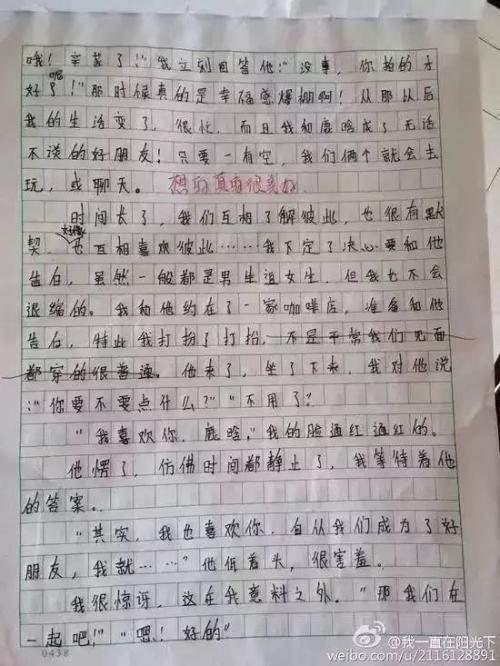 哦！辛苦了！”我立刻回答他：“没事，你拍的才
好呢！”那时候真的是幸福感爆棚啊！从那以后
我的生活变了，很忙，而且我和鹿晗成了无话
不说的好朋友！只要一有空，我们俩个就会去
玩，或聊天。 想的真有很美好.
时间长了，我们互相了解彼此，也很有默
契，好像也互相喜欢彼此……我下定了决心要和他
告白，虽然一般都是男生追女生，但我也不会
退缩的。我和他约在了一家咖啡店，准备和他
告白，特此我打扮了打扮，不是平常我们见面
都穿的很普通。他来了，坐了下来，我对他说
：“你要不要点什么？”“不用了？
“我喜欢你，鹿晗，”我的脸通红通红的。
他愣了，仿佛时间都静止了，我等待着他
的答案。
“其实，我也喜欢你，自从我们成为了好
朋友，我就……”他低着头，很害羞。
我很惊讶，这在我意料之外。“那我们在
一起吧！”“嗯！好的”
0438
@我一直在阳光下
weibo.com/u/2116128891